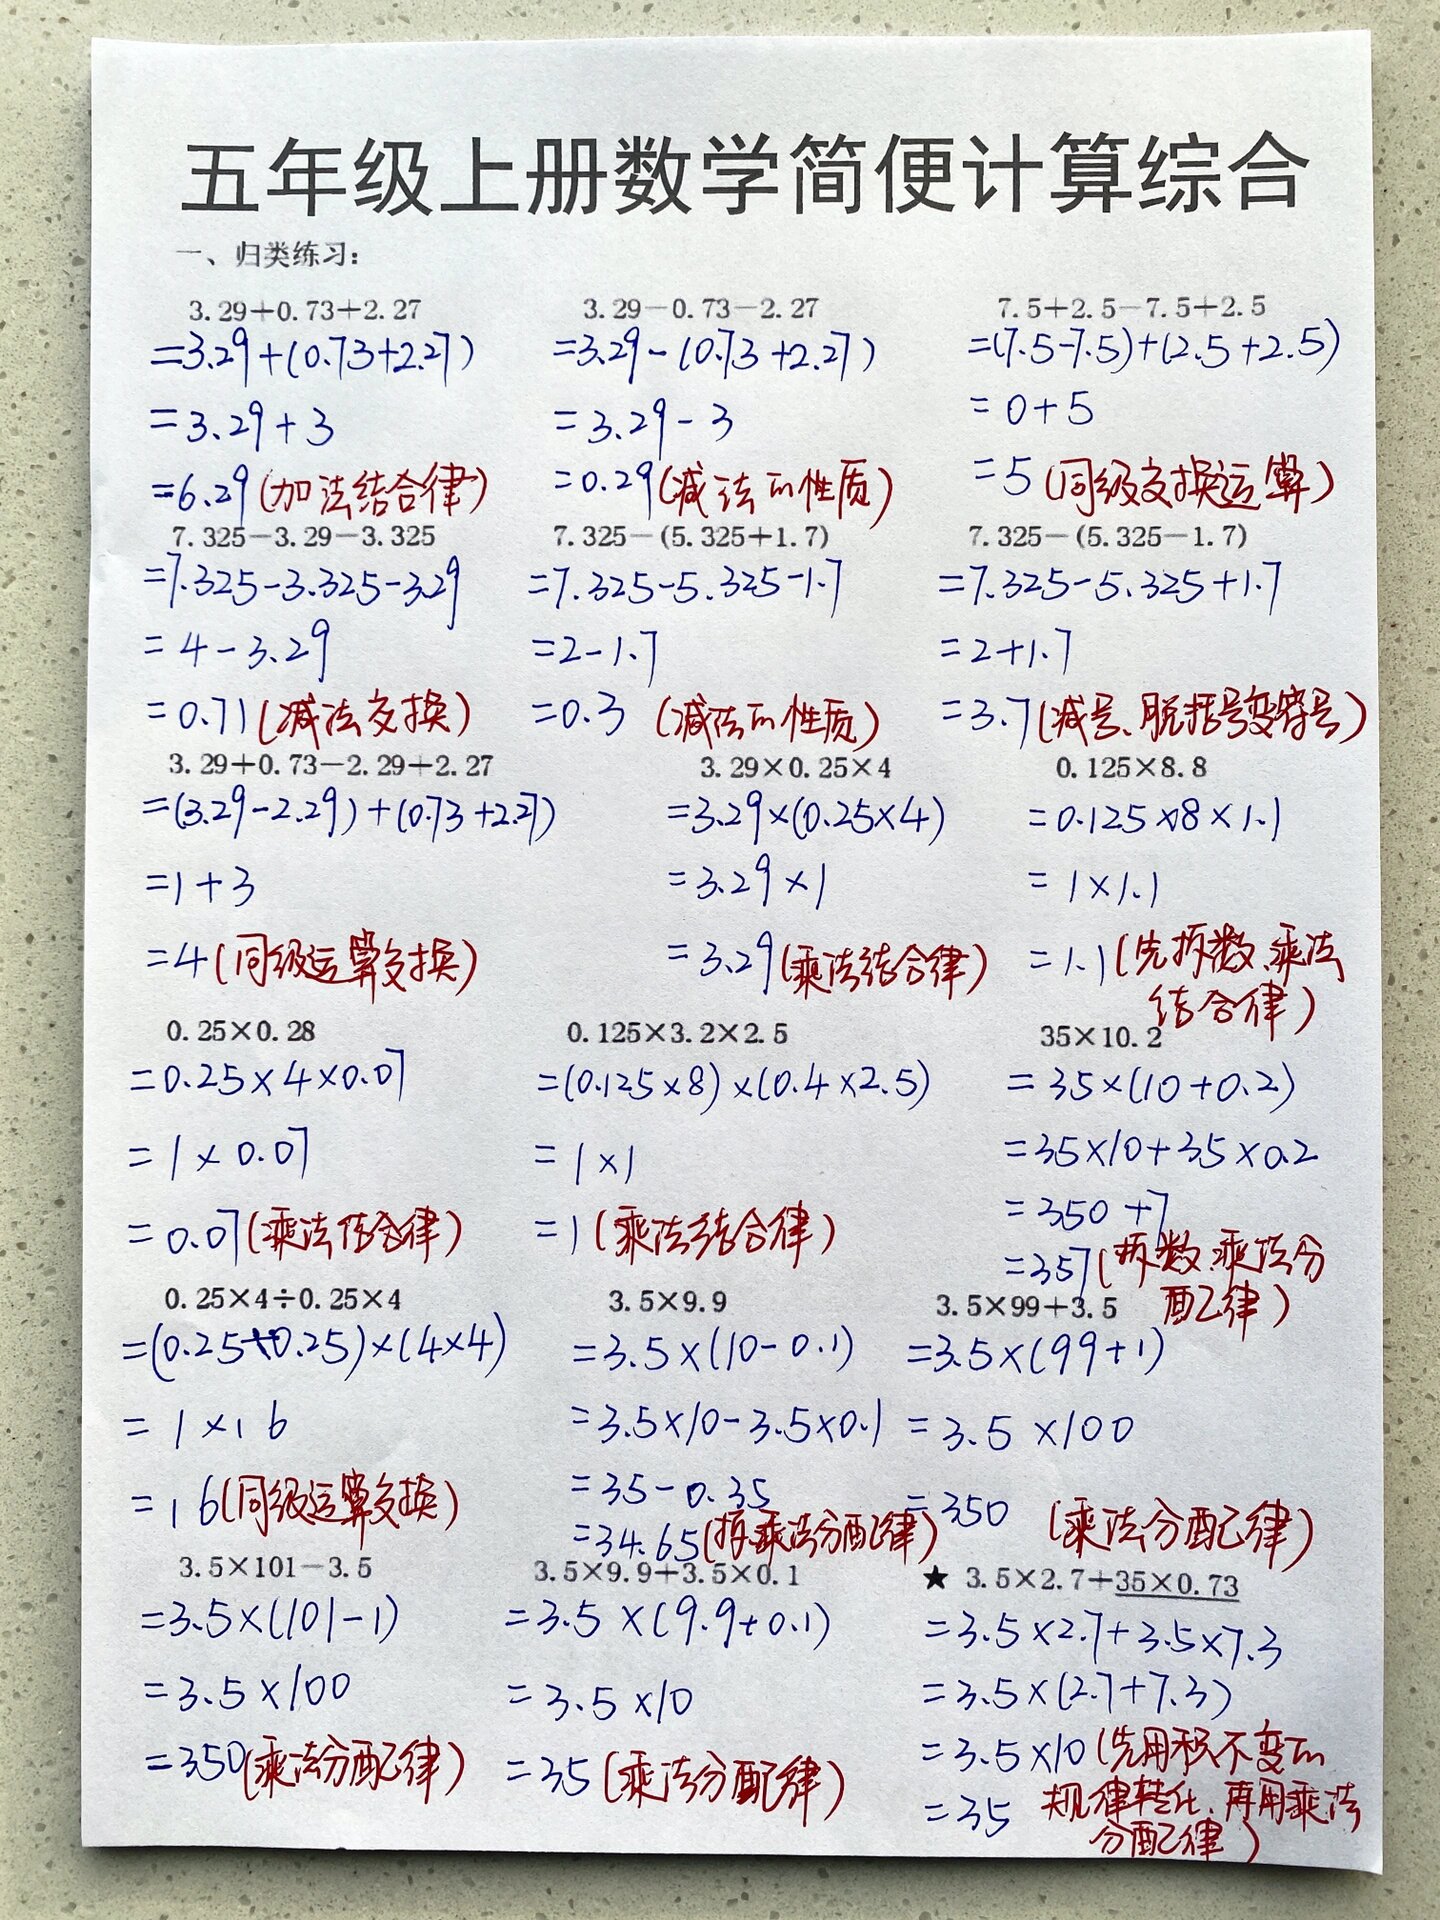 五年级上册数学简便计算综合
一、归类练习：
3.29＋0.73＋2.27
=3.29+(0.73+2.27)
=3.29+3
=6.29(加法结合律)
3.29－0.73－2.27
=3.29-(0.73+2.27)
=3.29-3
=0.29(减法的性质)
7.5＋2.5－7.5＋2.5
=(7.5-7.5)+(2.5+2.5)
=0+5
=5(同级交换运算)
7.325－3.29－3.325
=7.325-3.325-3.29
=4-3.29
=0.71(减法交换)
7.325－(5.325＋1.7)
=7.325-5.325-1.7
=2-1.7
=0.3(减法的性质)
7.325－(5.325－1.7)
=7.325-5.325+1.7
=2+1.7
=3.7(减号、脱括号变符号)
3.29＋0.73－2.29＋2.27
=(3.29-2.29)+(0.73+2.27)
=1+3
=4(同级运算交换)
3.29×0.25×4
=3.29×(0.25×4)
=3.29×1
=3.29(乘法结合律)
0.125×8.8
=0.125×8×1.1
=1×1.1
=1.1(先拆数、乘法
结合律)
0.25×0.28
=0.25×4×0.07
=1×0.07
=0.07(乘法结合律)
0.125×3.2×2.5
=(0.125×8)×(0.4×2.5)
=1×1
=1(乘法结合律)
35×10.2
=35×(10+0.2)
=35×10+35×0.2
=350+7
=357(拆数、乘法分
配律)
0.25×4÷0.25×4
=(0.25÷0.25)×(4×4)
=1×16
=16(同级运算交换)
3.5×9.9
=3.5×(10-0.1)
=3.5×10-3.5×0.1
=35-0.35
=34.65(拆、乘法分配律)
3.5×99＋3.5
=3.5×(99+1)
=3.5×100
=350(乘法分配律)
3.5×101－3.5
=3.5×(101-1)
=3.5×100
=350(乘法分配律)
3.5×9.9＋3.5×0.1
=3.5×(9.9+0.1)
=3.5×10
=35(乘法分配律)
★ 3.5×2.7＋35×0.73
=3.5×2.7+3.5×7.3
=3.5×(2.7+7.3)
=3.5×10(先用积不变的
=35 规律转化、再用乘法
分配律)